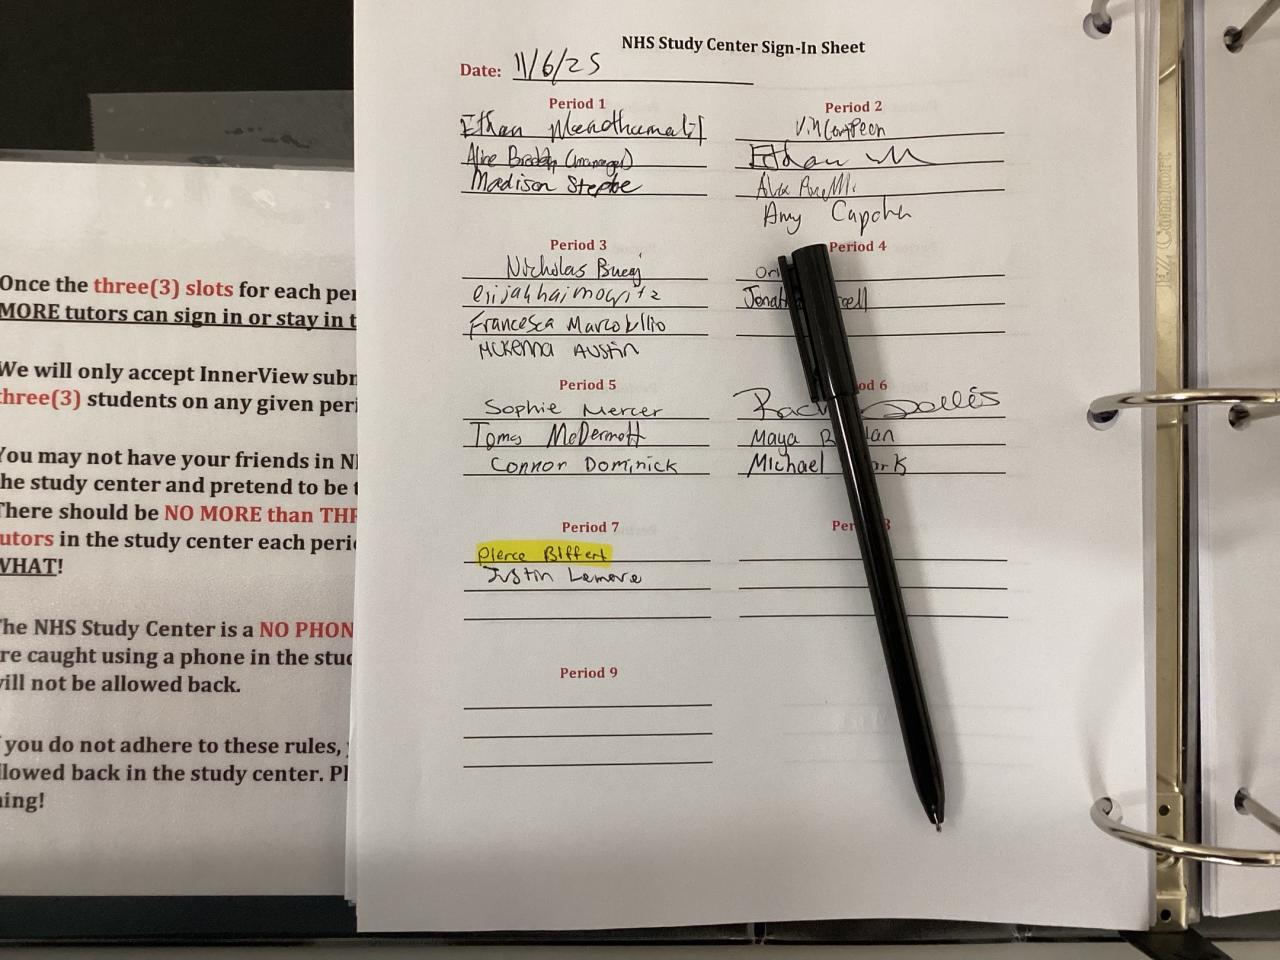 NHS Study Center Sign-In Sheet
Date: 11/6/25
Period 1
Ethan
Alice (manager)
Madison
Period 2
Ethan M
Alex
Amy
Period 3
Nicholas
elijah haimowitz
Francesca
McKenna Austin
Period 4
Period 5
Sophie Mercer
Tomas McDermott
Connor Dominick
od 6
Maya
Michael
Period 7
Pierce Biffert
Justin
Per
Period 9
Once the three(3) slots for each per
MORE tutors can sign in or stay in t
We will only accept InnerView subn
three(3) students on any given peri
You may not have your friends in N
he study center and pretend to be t
There should be NO MORE than THR
utors in the study center each peri
WHAT!
The NHS Study Center is a NO PHON
re caught using a phone in the stud
vill not be allowed back.
f you do not adhere to these rules,
llowed back in the study center. Pl
ing!